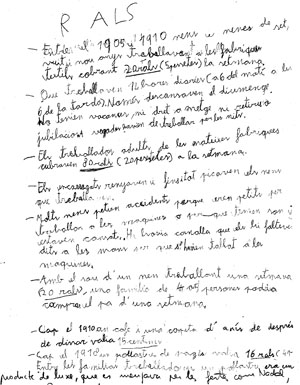 RALS
- Entre el 1905 i 1910 nens u nenes de set,
vuit i nou anys treballaven a les fabriques
textils cobrant 20 rals (5 pesetes) la setmana.
- Que treballaven 12 hores diaries (a 6 del matí a les
6 de la tarda). Només descansaven el diumenge.
No tenien vacances, ni dret a metge ni retir o
jubilació i vegades havien de treballar per les nits.
- Els treballadors adults de les mateixes fabriques
cobraven 80 rals (20 pesetes) a la setmana.
- Els encarregats renyaven u finsitot picaven els nens
que treballaven
- Molts nens petien accidents perque eren petits per
treballar a les maquines o perque tenien son
estaven cansats. Hi havia canalla que els hi faltava
dits a les mans per que s'havien tallat a les
maquines.
- Amb el sou d'un nen treballant una setmana
(20 rals), una familia de persones podia
comprar el pa d'una setmana.
- Cap el 1910 un cafe i una copita d'anis despés
de dinar valia 15 centims
- Cap el 1910 un pollastre de pages valia 16 rals
Entre les families treballadores un pollastre era un
producte de luxe, que es menjava per les festes com Nadal,